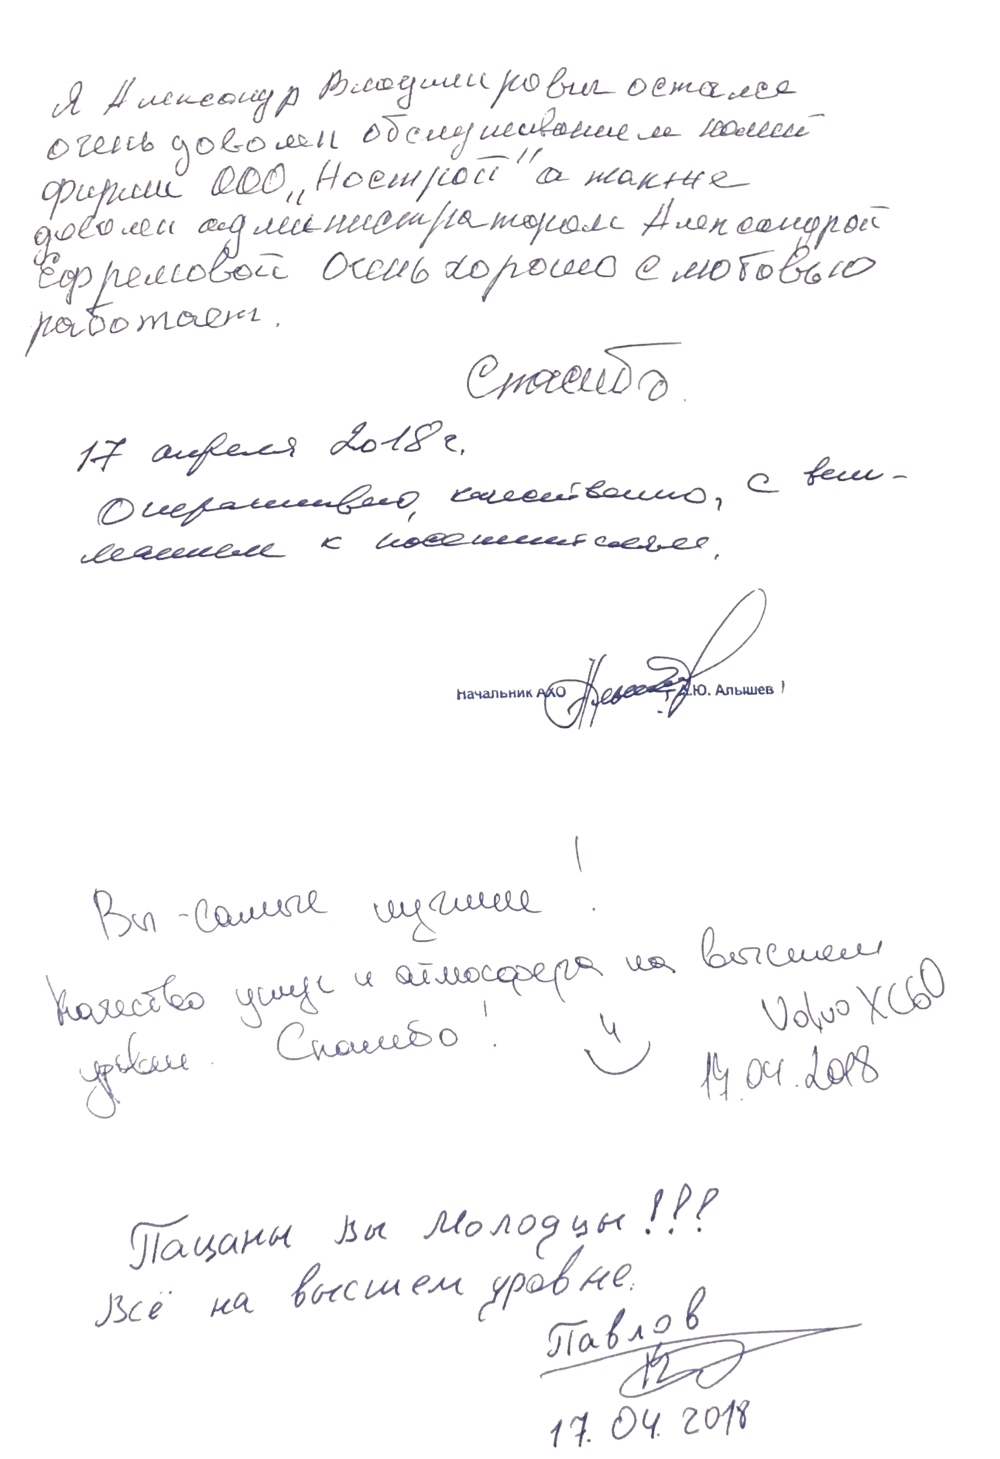 Я Александр Владимирович остался
очень доволен обслуживанием нашей
фирмы ООО „Нострой" а также
доволен администратором Александрой
Ефремовой Очень хорошо с любовью
работает.
Спасибо.
17 апреля 2018 г.
Оперативно, качественно, с вни-
манием к посетителям.
Начальник АХО А.Ю. Алышев
Вы - самые лучшие!
Качество услуг и атмосфера на высшем
уровне. Спасибо!
Volvo XC60
17.04.2018
Пацаны Вы Молодцы!!!
Всё на высшем уровне.
Павлов
17.04.2018